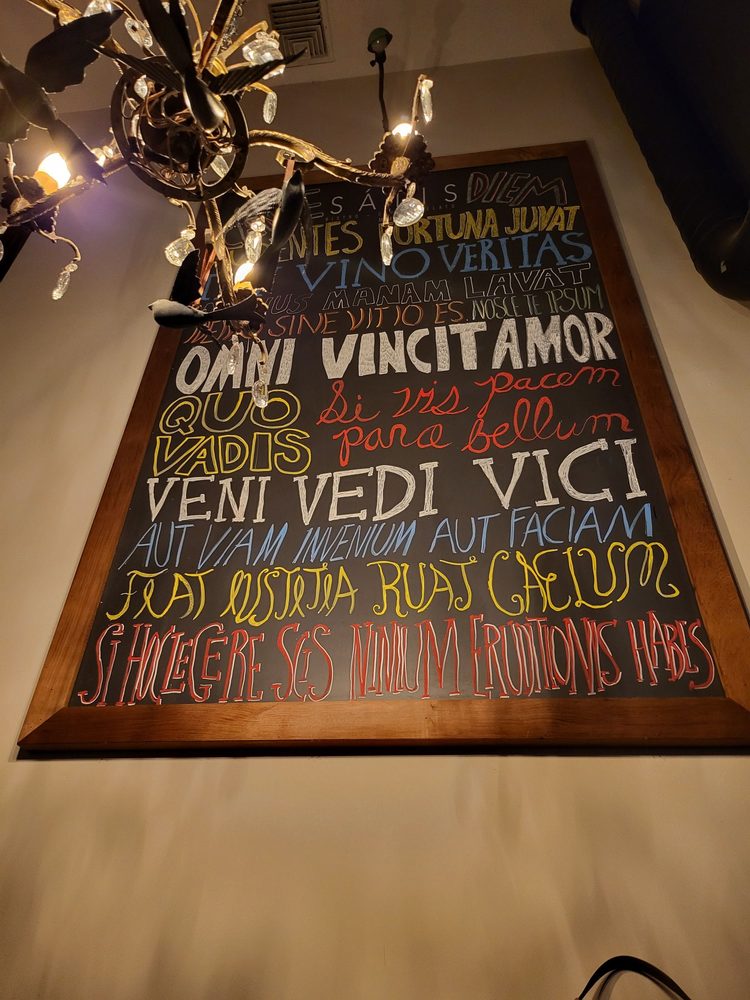 DIEM
FORTUNA JUVAT
VINO VERITAS
MANAM LAVAT
SINE VITIO ES. NOSCE TE IPSUM
OMNI VINCIT AMOR
QUO VADIS
Si vis pacem
para bellum
VENI VEDI VICI
AUT VIAM INVENIUM AUT FACIAM
FIAT IUSTITIA RUAT CAELUM
SI HOC LEGERE SCIS NIMIUM ERUDITIONIS HABES